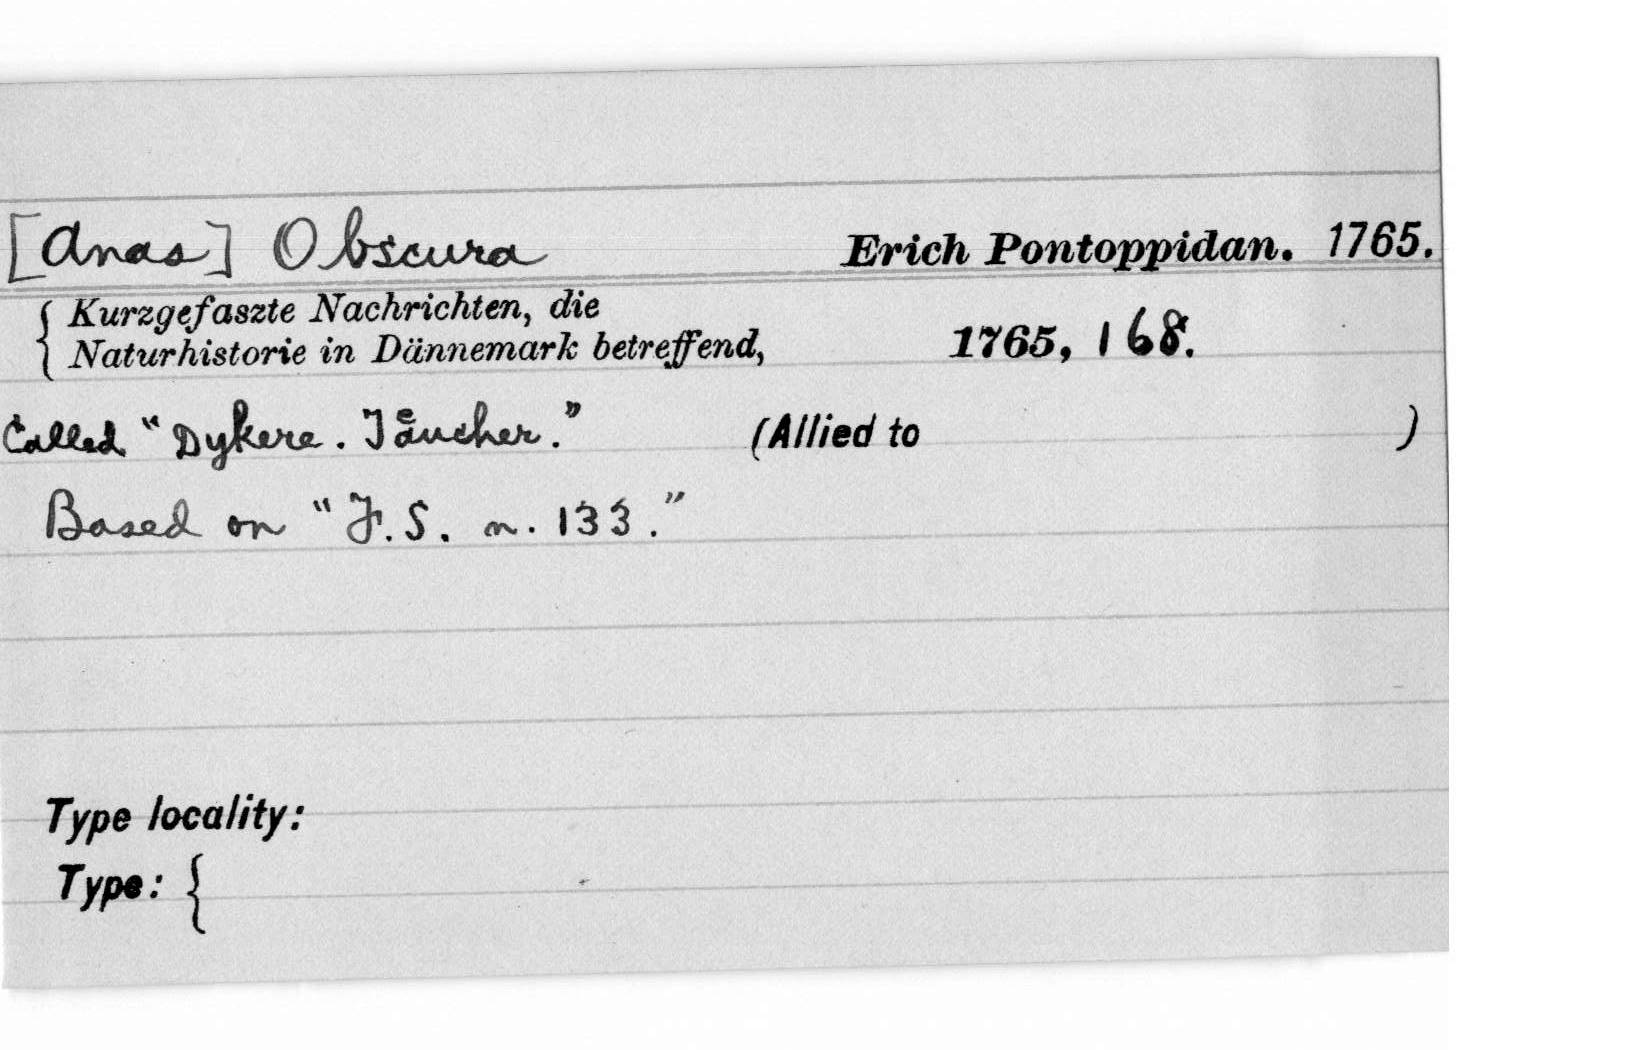 [Anas] Obscura Erich Pontoppidan. 1765.
{ Kurzgefaszte Nachrichten, die
Naturhistorie in Dännemark betreffend, 1765, 168.
Called "Dykere. Taͤucher." (Allied to )
Based on "F. S. n. 133."
Type locality:
Type: {